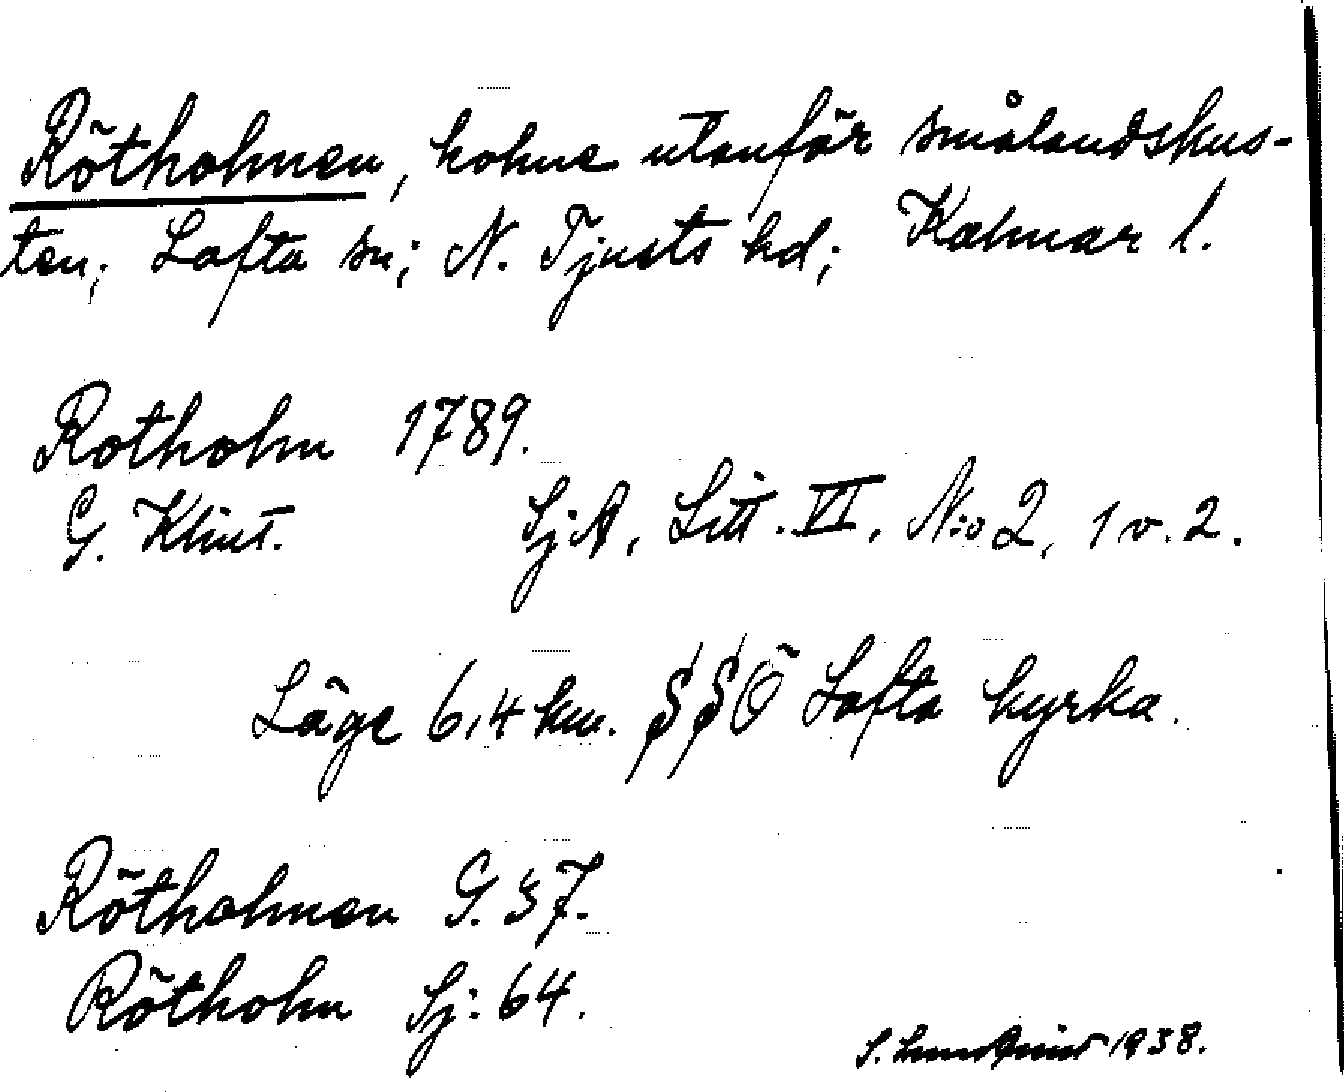 Rötholmen, holme utanför smålandskus-
ten; Lofta sn; N. Tjusts hd; Kalmar l.
Rotholm 1789.
G. Klint. SjA, Litt. VI, N:o 2, 1 v. 2.
Läge 6,4 km. SSÖ Lofta kyrka.
Rötholmen G. 37.
Rötholm Sj: 64.
S. 1938.